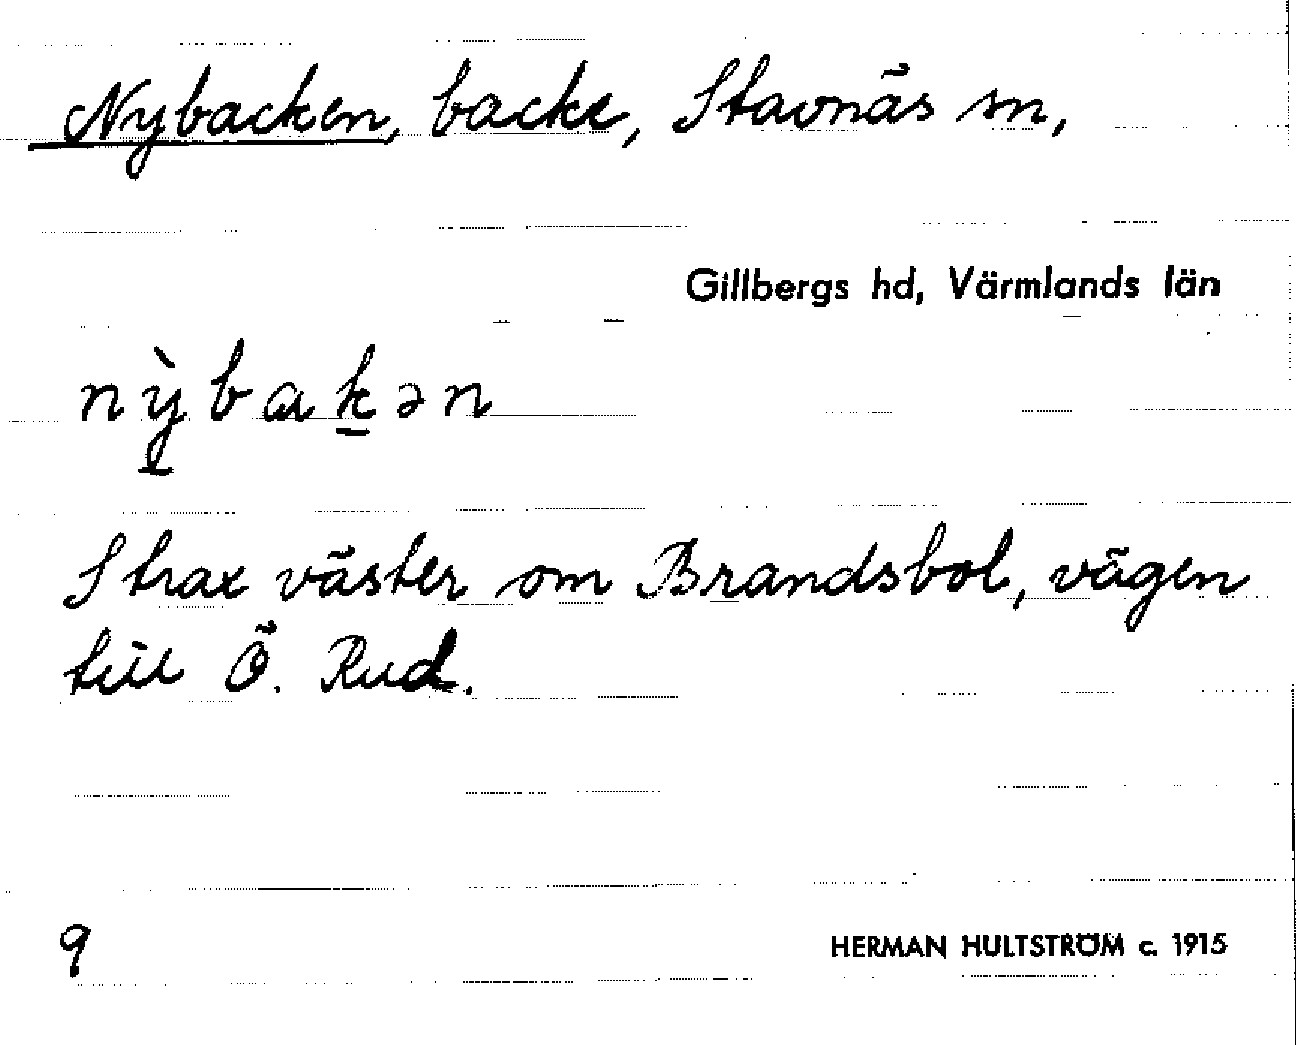 Nybacken, backe, Stavnäs sn,
Gillbergs hd, Värmlands län
nỳ̠bak̠ən
Strax väster om Brandsbol, vägen
till Ö. Rud.
9
HERMAN HULTSTRÖM c. 1915